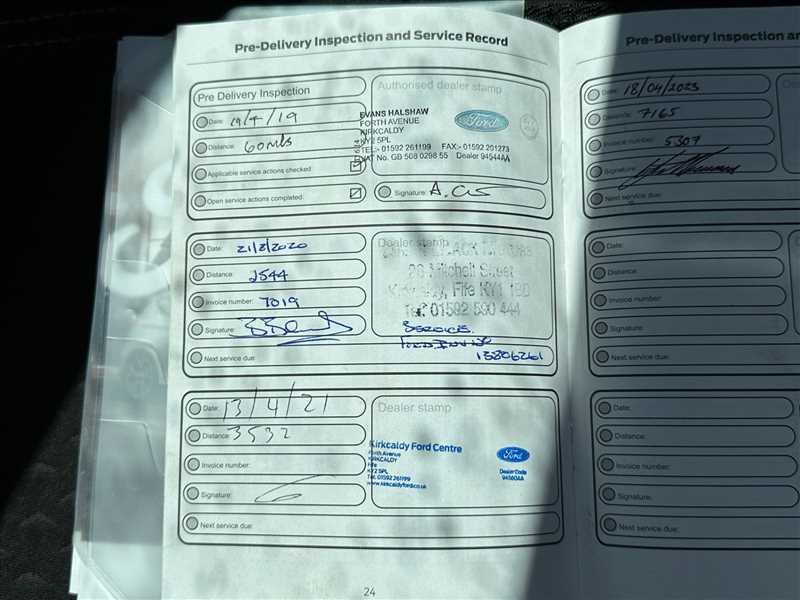 Pre-Delivery Inspection and Service Record
Pre Delivery Inspection
Date: 19/4/19
Distance: 60 mls
Applicable service actions checked
Open service actions completed:
Authorised dealer stamp
EVANS HALSHAW
FORTH AVENUE
KIRKCALDY
KY2 5PL
TEL:- 01592 261199 FAX:- 01592 201273
VAT No. GB 568 0298 55 Dealer 94544AA
Ford
Signature:
Date: 21/2/2020
Distance: 2544
Invoice number: 7019
Signature:
Next service due:
Dealer stamp
26 Mitchell Street
Fife KY1 1BD
Tel: 01592 590 444
13806261
Date: 13/4/21
Distance: 3532
Invoice number:
Signature:
Next service due:
Dealer stamp
Kirkcaldy Ford Centre
Forth Avenue
KIRKCALDY
Fife
KY2 5PL
Tel. 01592 261199
www.kirkcaldyford.co.uk
Ford
Dealer Code
94560AA
24
Pre-Delivery Inspection
Date: 18/04/2023
Distance: 7165
Invoice number: 5307
Signature:
Next service due:
Date:
Distance:
Invoice number:
Signature:
Next service due:
Date:
Distance:
Invoice number:
Signature:
Next service due: